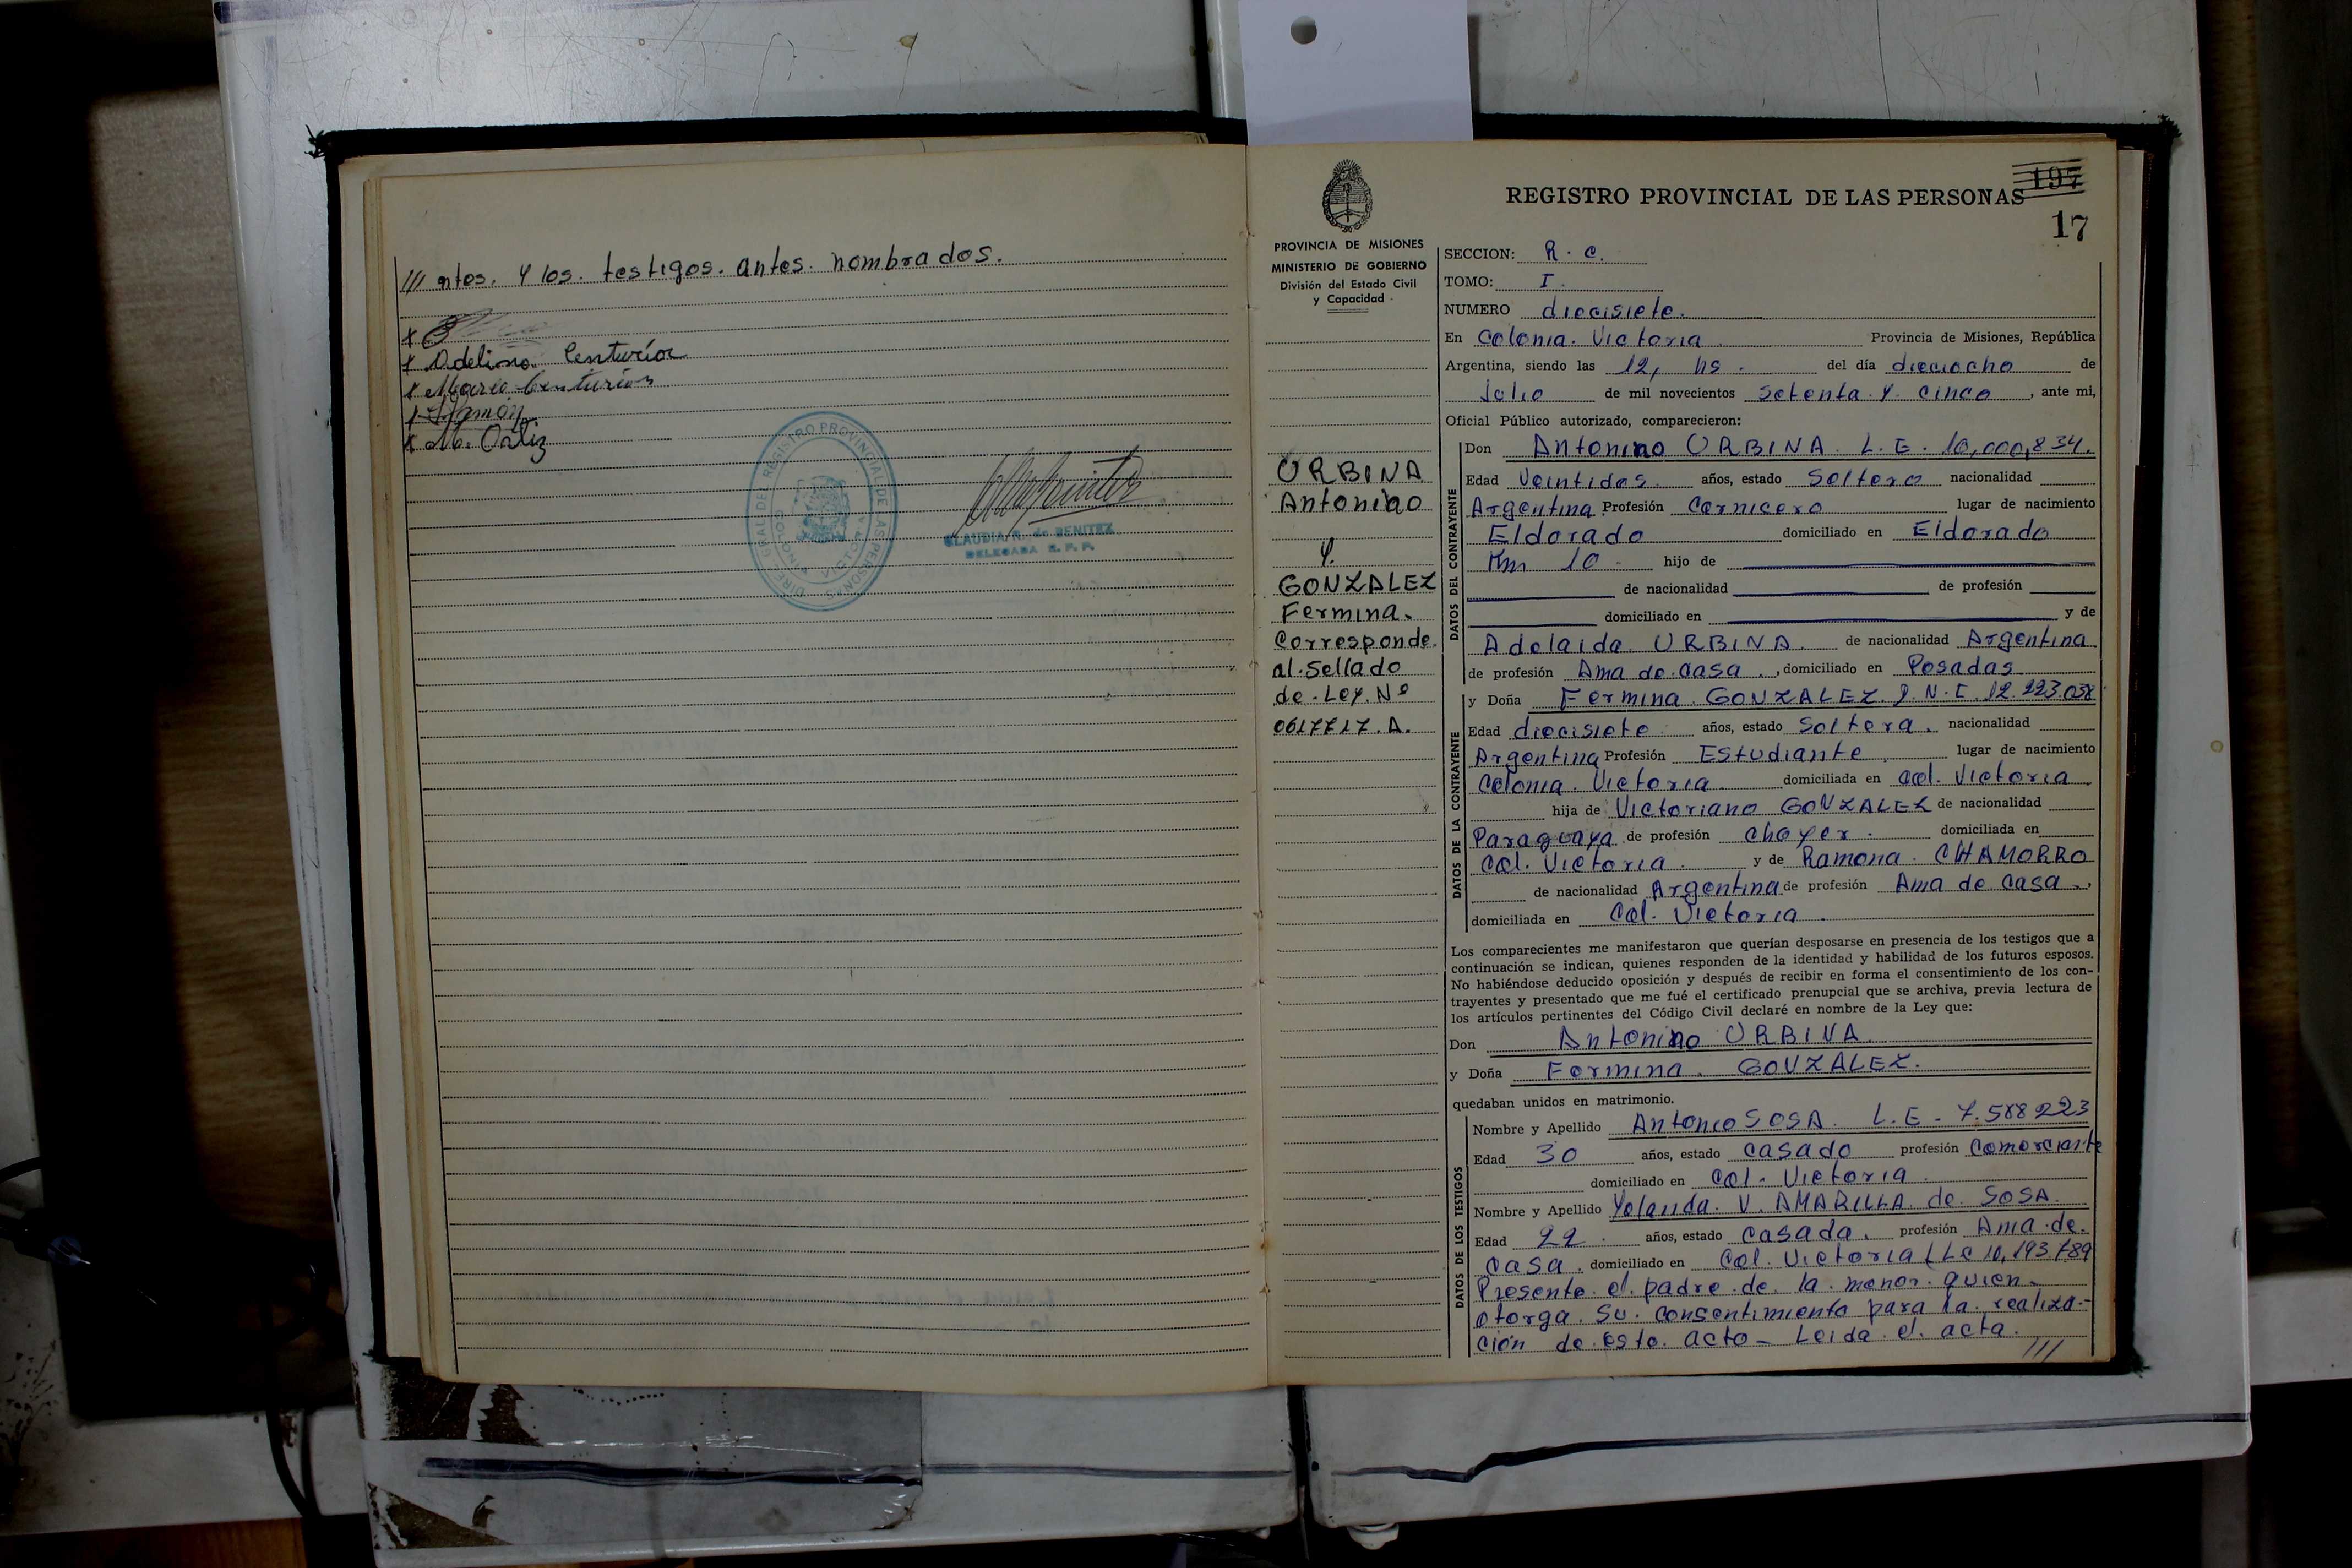 /// ntes. y los. testigos. antes. nombrados.
x Adelino. Centurión
x Mario Centurión
x Ramón
x M. Ortiz
CLAUDIA R. de BENITEZ
DELEGADA R. P. P.
197
REGISTRO PROVINCIAL DE LAS PERSONAS
17
PROVINCIA DE MISIONES
MINISTERIO DE GOBIERNO
División del Estado Civil
y Capacidad
URBINA
Antonino
y.
GONZALEZ
Fermina.
Corresponde.
al. Sellado
de. Ley. Nº
0617717. A.
SECCION: R. C.
TOMO: I.
NUMERO diecisiete.
En Colonia. Victoria. Provincia de Misiones, República
Argentina, siendo las 12, hs. del día dieciocho de
Julio de mil novecientos Setenta. y. cinco, ante mi,
Oficial Público autorizado, comparecieron:
DATOS DEL CONTRAYENTE
Don Antonino URBINA. L. E. 10,000,834.
Edad Veintidos. años, estado Soltero nacionalidad
Argentina Profesión Carnicero lugar de nacimiento
Eldorado domiciliado en Eldorado
Km 10. hijo de
de nacionalidad de profesión
domiciliado en y de
Adelaida URBINA. de nacionalidad Argentina
de profesión Ama de casa., domiciliado en Posadas
DATOS DE LA CONTRAYENTE
y Doña Fermina. GONZALEZ. D. N. I. 12.223.038
Edad diecisiete años, estado Soltera. nacionalidad
Argentina Profesión Estudiante lugar de nacimiento
Colonia. Victoria. domiciliada en Col. Victoria
hija de Victoriano GONZALEZ de nacionalidad
Paraguaya de profesión chofer. domiciliada en
Col. Victoria. y de Ramona. CHAMORRO
de nacionalidad Argentina de profesión Ama de casa.,
domiciliada en Col. Victoria.
Los comparecientes me manifestaron que querían desposarse en presencia de los testigos que a
continuación se indican, quienes responden de la identidad y habilidad de los futuros esposos.
No habiéndose deducido oposición y después de recibir en forma el consentimiento de los con-
trayentes y presentado que me fué el certificado prenupcial que se archiva, previa lectura de
los artículos pertinentes del Código Civil declaré en nombre de la Ley que:
Don Antonino URBINA
y Doña Fermina. GONZALEZ.
quedaban unidos en matrimonio.
DATOS DE LOS TESTIGOS
Nombre y Apellido Antonio SOSA. L. E. 7.588223
Edad 30 años, estado casado profesión Comerciante
domiciliado en Col. Victoria.
Nombre y Apellido Yolanda. V. AMARILLA. de. SOSA.
Edad 22. años, estado casada. profesión Ama. de.
casa. domiciliado en Col. Victoria (LC 10,193789
Presente el padre. de. la. menor. quien.
otorga. su. consentimiento para la. realiza-
ción de. este. acto_ Leida. el. acta.
///